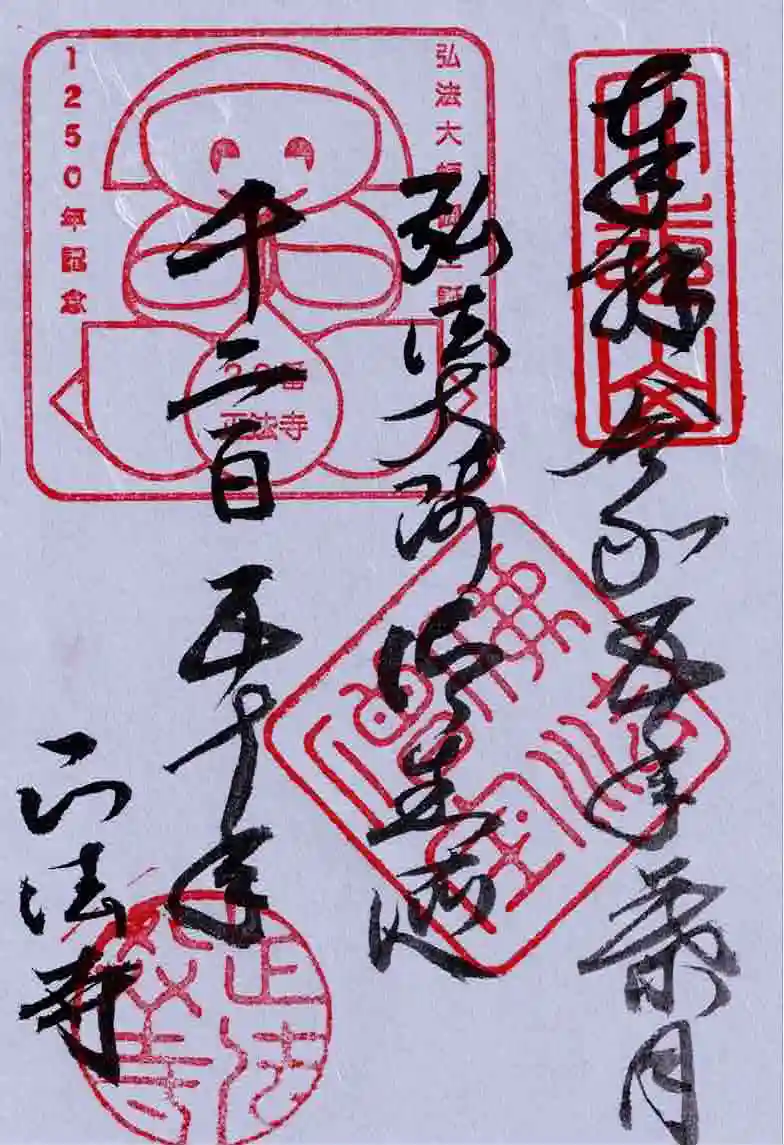 奉拝 令和五年葉月
弘法大師御生誕
千二百五十年
正法寺
弘法大師御生誕
1250年記念
番
正法寺
正法
寺